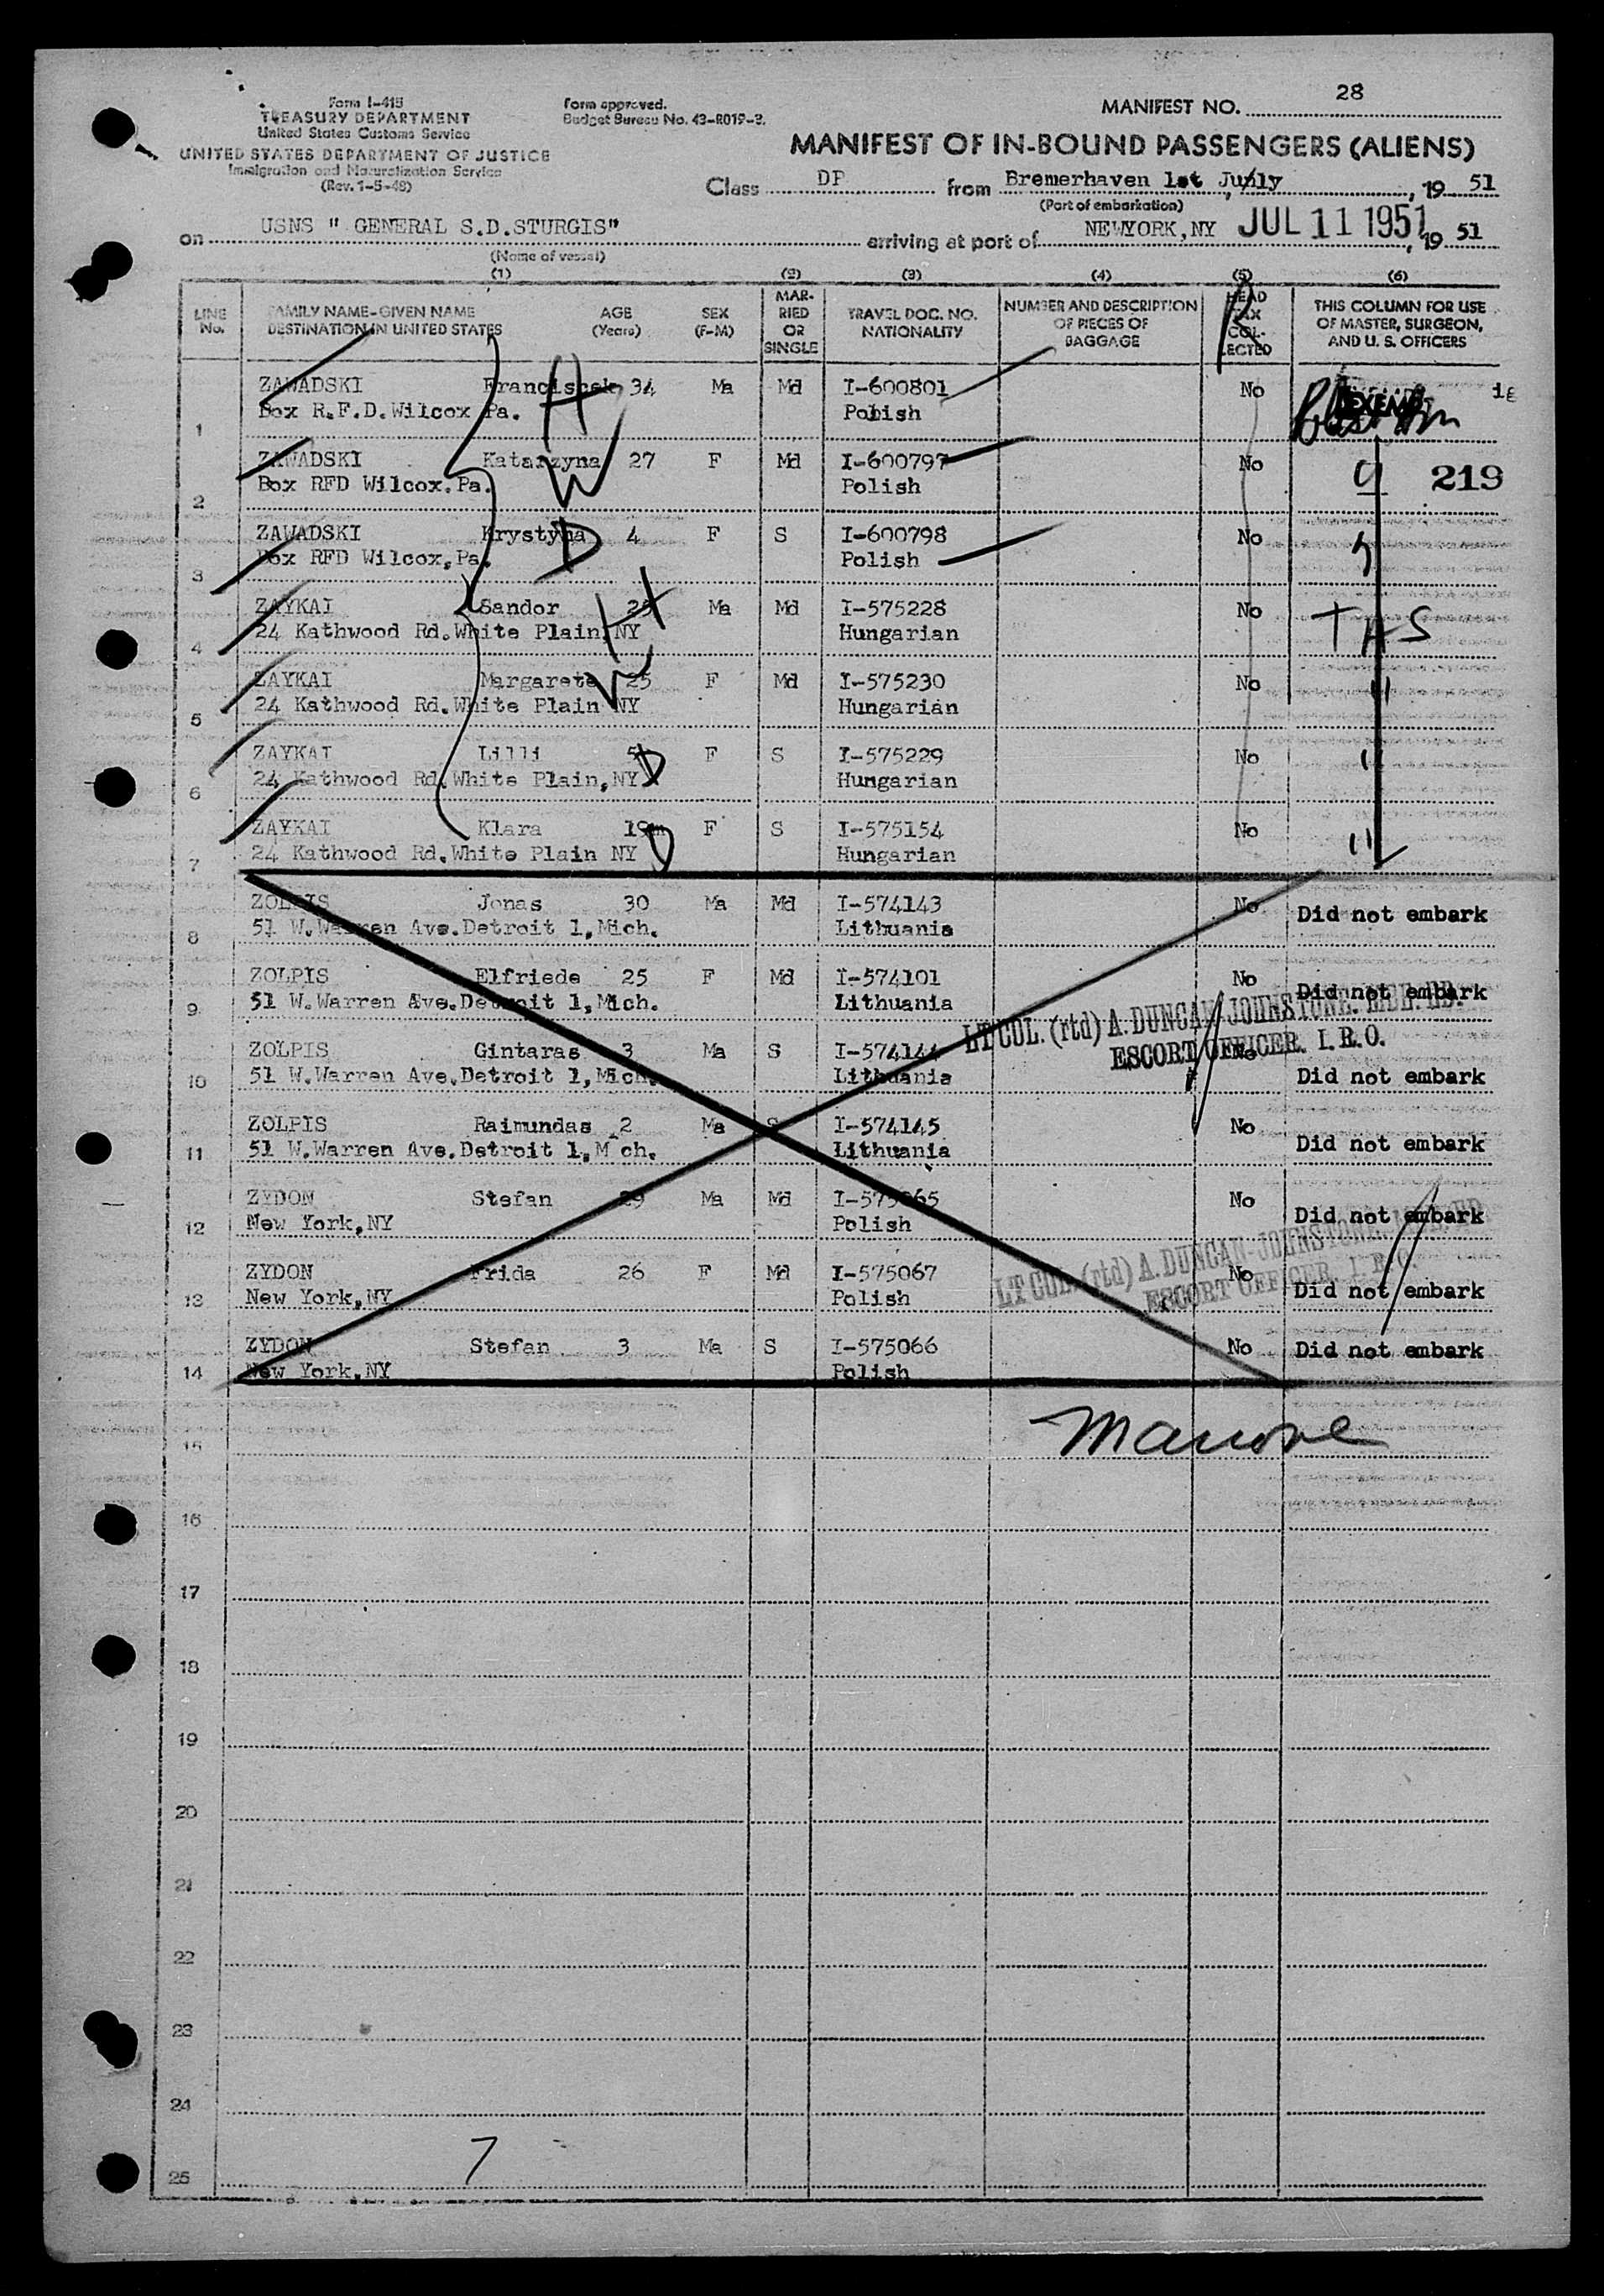 Form I-415
TREASURY DEPARTMENT
United States Customs Service
UNITED STATES DEPARTMENT OF JUSTICE
Immigration and Naturalization Service
(Rev. 1-5-48)
Form approved.
Budget Bureau No. 43-R019-3.
MANIFEST NO. 28
MANIFEST OF IN-BOUND PASSENGERS (ALIENS)
Class DP from Bremerhaven 1st July, 19 51
(Port of embarkation)
on USNS " GENERAL S.D.STURGIS" arriving at port of NEWYORK,NY JUL 11 1951, 19 51
(Name of vessel)
(1) (2) (3) (4) (5) (6)
LINE No. FAMILY NAME-GIVEN NAME DESTINATION IN UNITED STATES AGE (Years) SEX (F-M) MARRIED OR SINGLE TRAVEL DOC. NO. NATIONALITY NUMBER AND DESCRIPTION OF PIECES OF BAGGAGE HEAD TAX COLLECTED THIS COLUMN FOR USE OF MASTER, SURGEON, AND U. S. OFFICERS
ZAWADSKI Franciszek 34 Ma Md I-600801 No
1 Box R.F.D.Wilcox Pa. H Polish EXEMPT
ZAWADSKI Katarzyna 27 F Md I-600797 No 219
2 Box RFD Wilcox.Pa. W Polish
ZAWADSKI Krystyna 4 F S I-600798 No "
3 Box RFD Wilcox,Pa. D Polish
ZAYKAI Sandor H Ma Md I-575228 No TAS
4 24 Kathwood Rd.White Plain,NY Hungarian
ZAYKAI Margarete 25 F Md I-575230 No "
5 24 Kathwood Rd.White Plain NY W Hungarian
ZAYKAI Lilli 5 F S I-575229 No "
6 24 Kathwood Rd.White Plain,NY D Hungarian
ZAYKAI Klara 19m F S I-575154 No "
7 24 Kathwood Rd.White Plain NY D Hungarian
ZOLPIS Jonas 30 Ma Md I-574143 No Did not embark
8 51 W.Warren Ave.Detroit 1,Mich. Lithuania
ZOLPIS Elfriede 25 F Md I-574101 No Did not embark
9 51 W.Warren Ave.Detroit 1,Mich. Lithuania
LT COL. (rtd) A. DUNCAN-JOHNSTONE.
ESCORT OFFICER. I.R.O.
ZOLPIS Gintaras 3 Ma S I-574144 No
10 51 W.Warren Ave.Detroit 1,Mich. Lithuania Did not embark
ZOLPIS Raimundas 2 Ma S I-574145 No
11 51 W.Warren Ave.Detroit 1,M ch. Lithuania Did not embark
ZYDON Stefan 29 Ma Md I-575065 No Did not embark
12 New York,NY Polish
LT COL. (rtd) A. DUNCAN-JOHNSTONE.
ESCORT OFFICER. I.R.O.
ZYDON Frida 26 F Md I-575067 No
13 New York,NY Polish Did not embark
ZYDON Stefan 3 Ma S I-575066 No Did not embark
14 New York,NY Polish
15
16
17
18
19
20
21
22
23
24
7
25